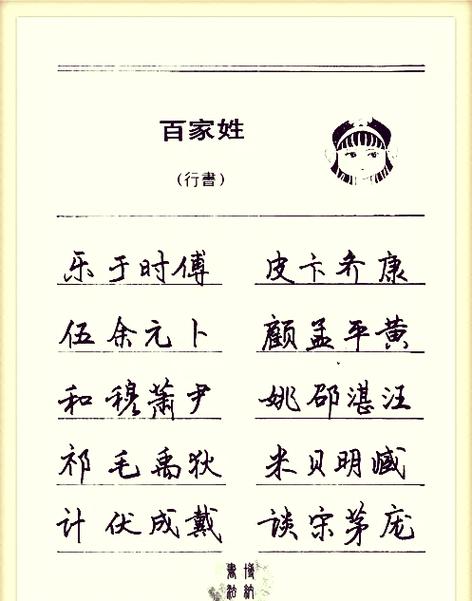 百家姓
(行書)
乐于时傅 皮卞齐康
伍余元卜 顧孟平黄
和穆萧尹 姚邵湛汪
祁毛禹狄 米贝明臧
计伏成戴 谈宋茅庞